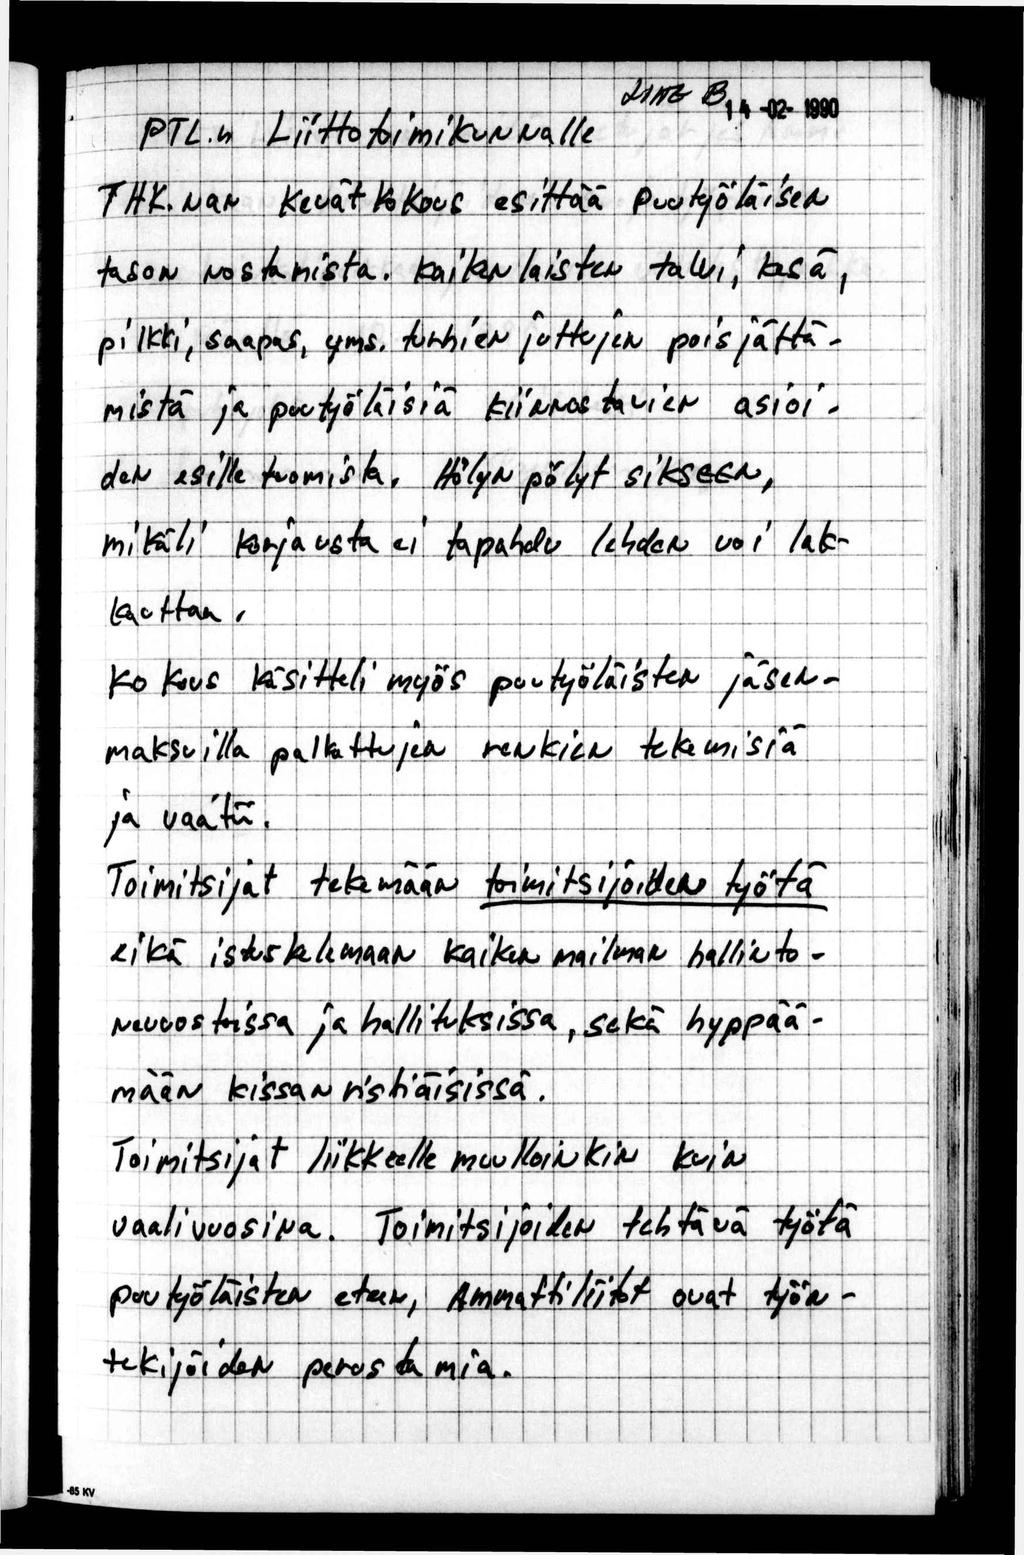 LIITE B
14 -02- 1990
PTL.n Liittotoimikunnalle
THK.nan Kevätkokous esittää Puutyöläisen
tason nostamista. Kaikenlaisten talvi, kesä,
pilkki, saapas, yms. turhien juttujen poisjättä-
mistä ja puutyöläisiä kiinnostavien asioi-
den esille tuomista. Hölyn pölyt sikseen,
mikäli korjausta ei tapahdu lehden voi lak-
kauttaa.
Kokous käsitteli myös puutyöläisten jäsen-
maksuilla palkattujen renkien tekemisiä
ja vaatii.
Toimitsijat tekemään toimitsijoiden työtä
eikä istuskelemaan kaiken mailman hallinto-
neuvostoissa ja hallituksissa, sekä hyppää-
mään kissan ristiäisissä.
Toimitsijat liikkeelle muulloinkin kuin
vaalivuosina. Toimitsijoiden tehtävä työtä
puutyöläisten eteen, Ammattiliitot ovat työn-
tekijöiden perustamia.
-85 KV